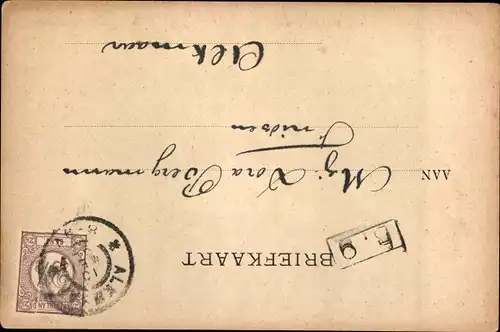 BRIEFKAART
B. 9
AAN Mej. Dora Bergmann
Alkmaar
ALKM